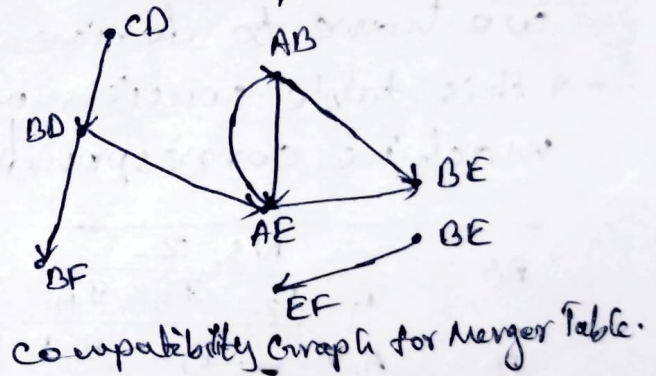 CD
AB
BD
BE
AE
BE
BF
EF
Compatibility Graph for Merger Table.